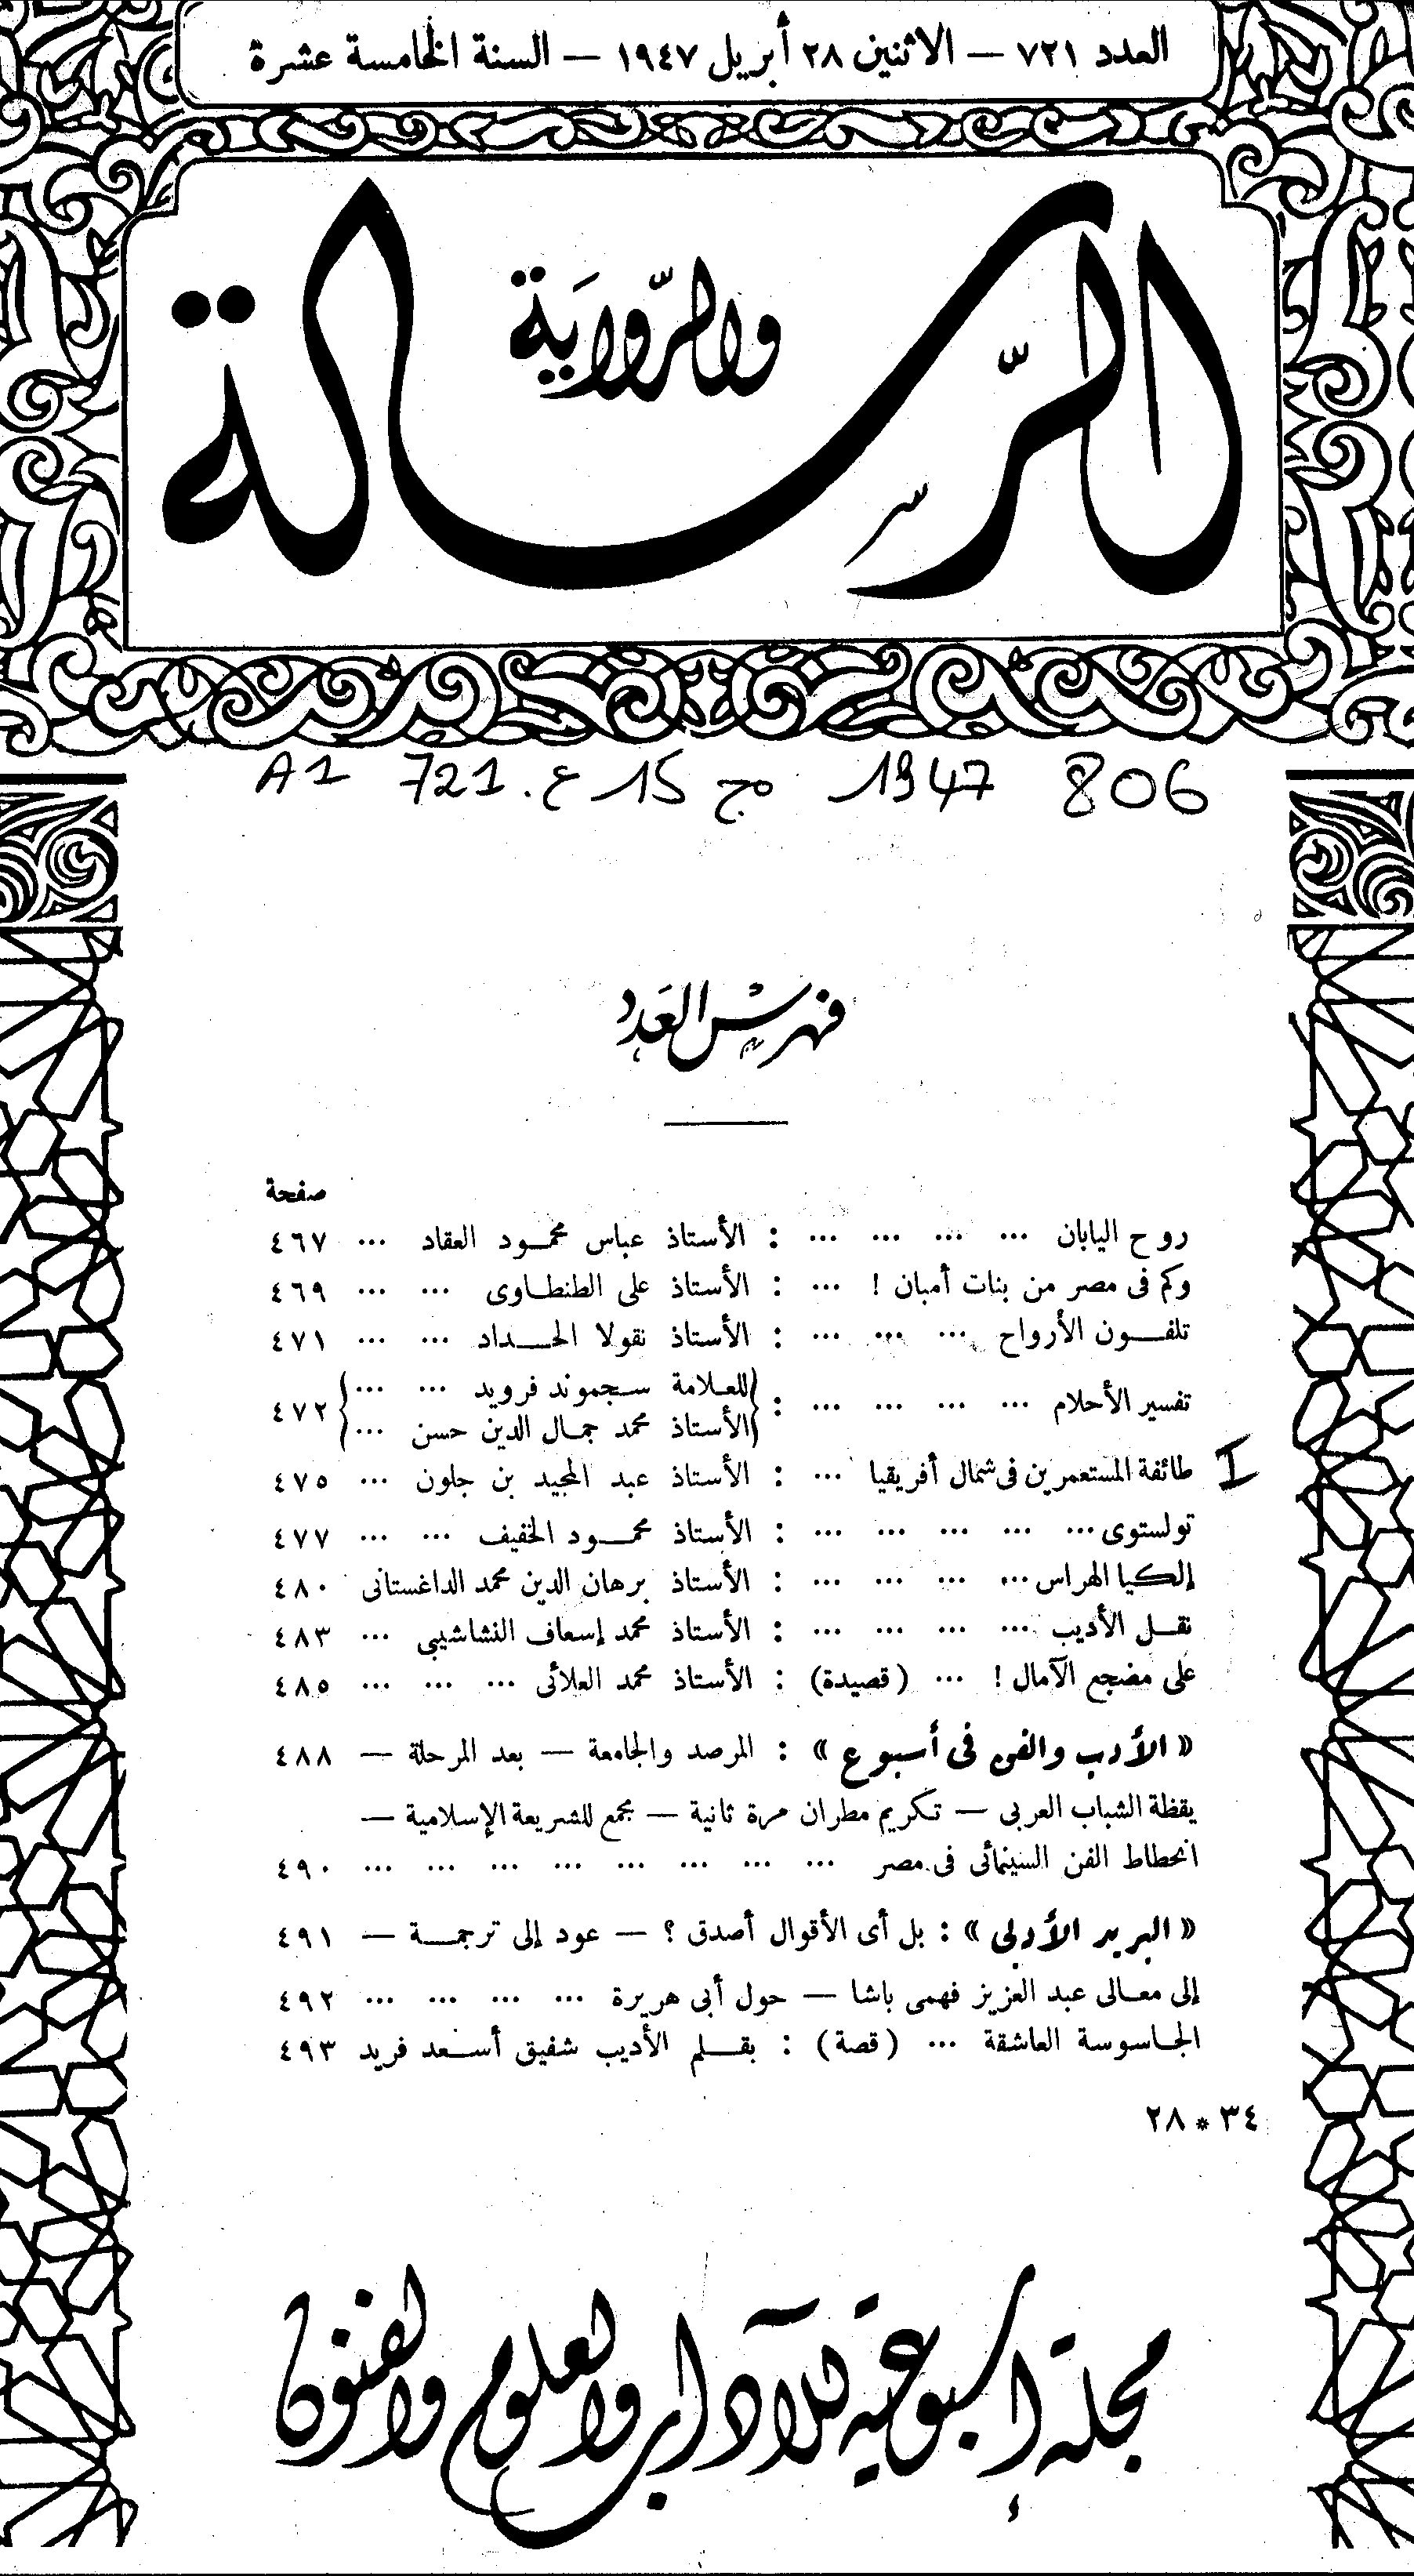 العدد ٧٢١ — الاثنين ٢٨ أبريل ١٩٤٧ — السنة الخامسة عشرة
الرسالة
والرواية
A1 721 .ع 15 مج 1947 806
فهرس العدد
صفحة
روح اليابان ... ... ... ... : الأستاذ عباس محمـود العقاد ... ٤٦٧
وكم فى مصر من بنات أمبان ! ... : الأستاذ على الطنطـاوى ... ... ٤٦٩
تلفـون الأرواح ... ... ... : الأستاذ نقولا الحـداد ... ... ٤٧١
تفسير الأحلام ... ... ... ... : { للعـلامة سـجموند فرويد ... ... / الأستاذ محمد جمـال الدين حسن ... } ٤٧٢
I طائفة المستعمرين فى شمال أفريقيا ... : الأستاذ عبد المجيد بن جلون ... ٤٧٥
تولستوى ... ... ... ... ... : الأستاذ محمـود الخفيف ... ... ٤٧٧
إلكيا الهراس ... ... ... ... : الأستاذ برهان الدين محمد الداغستانى ٤٨٠
نقـل الأديب ... ... ... ... : الأستاذ محمد إسعاف النشاشيبى ... ٤٨٣
على مضجع الآمال ! ... (قصيدة) : الأستاذ محمد العلائى ... ... ... ٤٨٥
« الأدب والفن فى أسبوع » : المرصد والجامعة — بعد المرحلة — ٤٨٨
يقظة الشباب العربى — تكريم مطران مرة ثانية — مجمع للشريعة الإسلامية —
انحطاط الفن السينمائى فى مصر ... ... ... ... ... ... ... ... ٤٩٠
« البريد الأدبى » : بل أى الأقوال أصدق ؟ — عود إلى ترجمـة — ٤٩١
إلى معـالى عبد العزيز فهمى باشا — حول أبى هريرة ... ... ... ... ٤٩٢
الجـاسوسة العاشقة ... (قصة) : بقـلم الأديب شفيق أسـعد فريد ٤٩٣
٣٤ * ٢٨
مجلة إسبوعية للآداب والعلوم والفنون